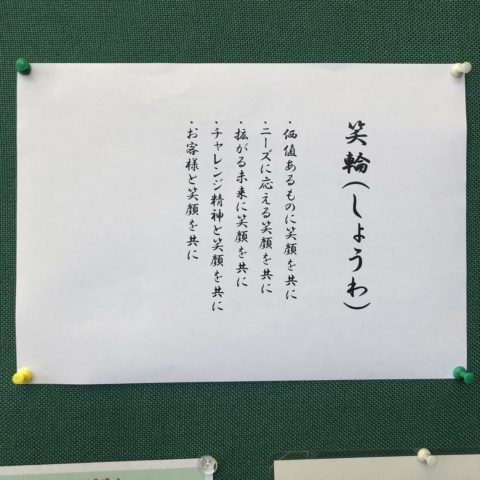 笑輪(しょうわ)
・価値あるものに笑顔を共に
・ニーズに応える笑顔を共に
・拡がる未来に笑顔を共に
・チャレンジ精神と笑顔を共に
・お客様と笑顔を共に